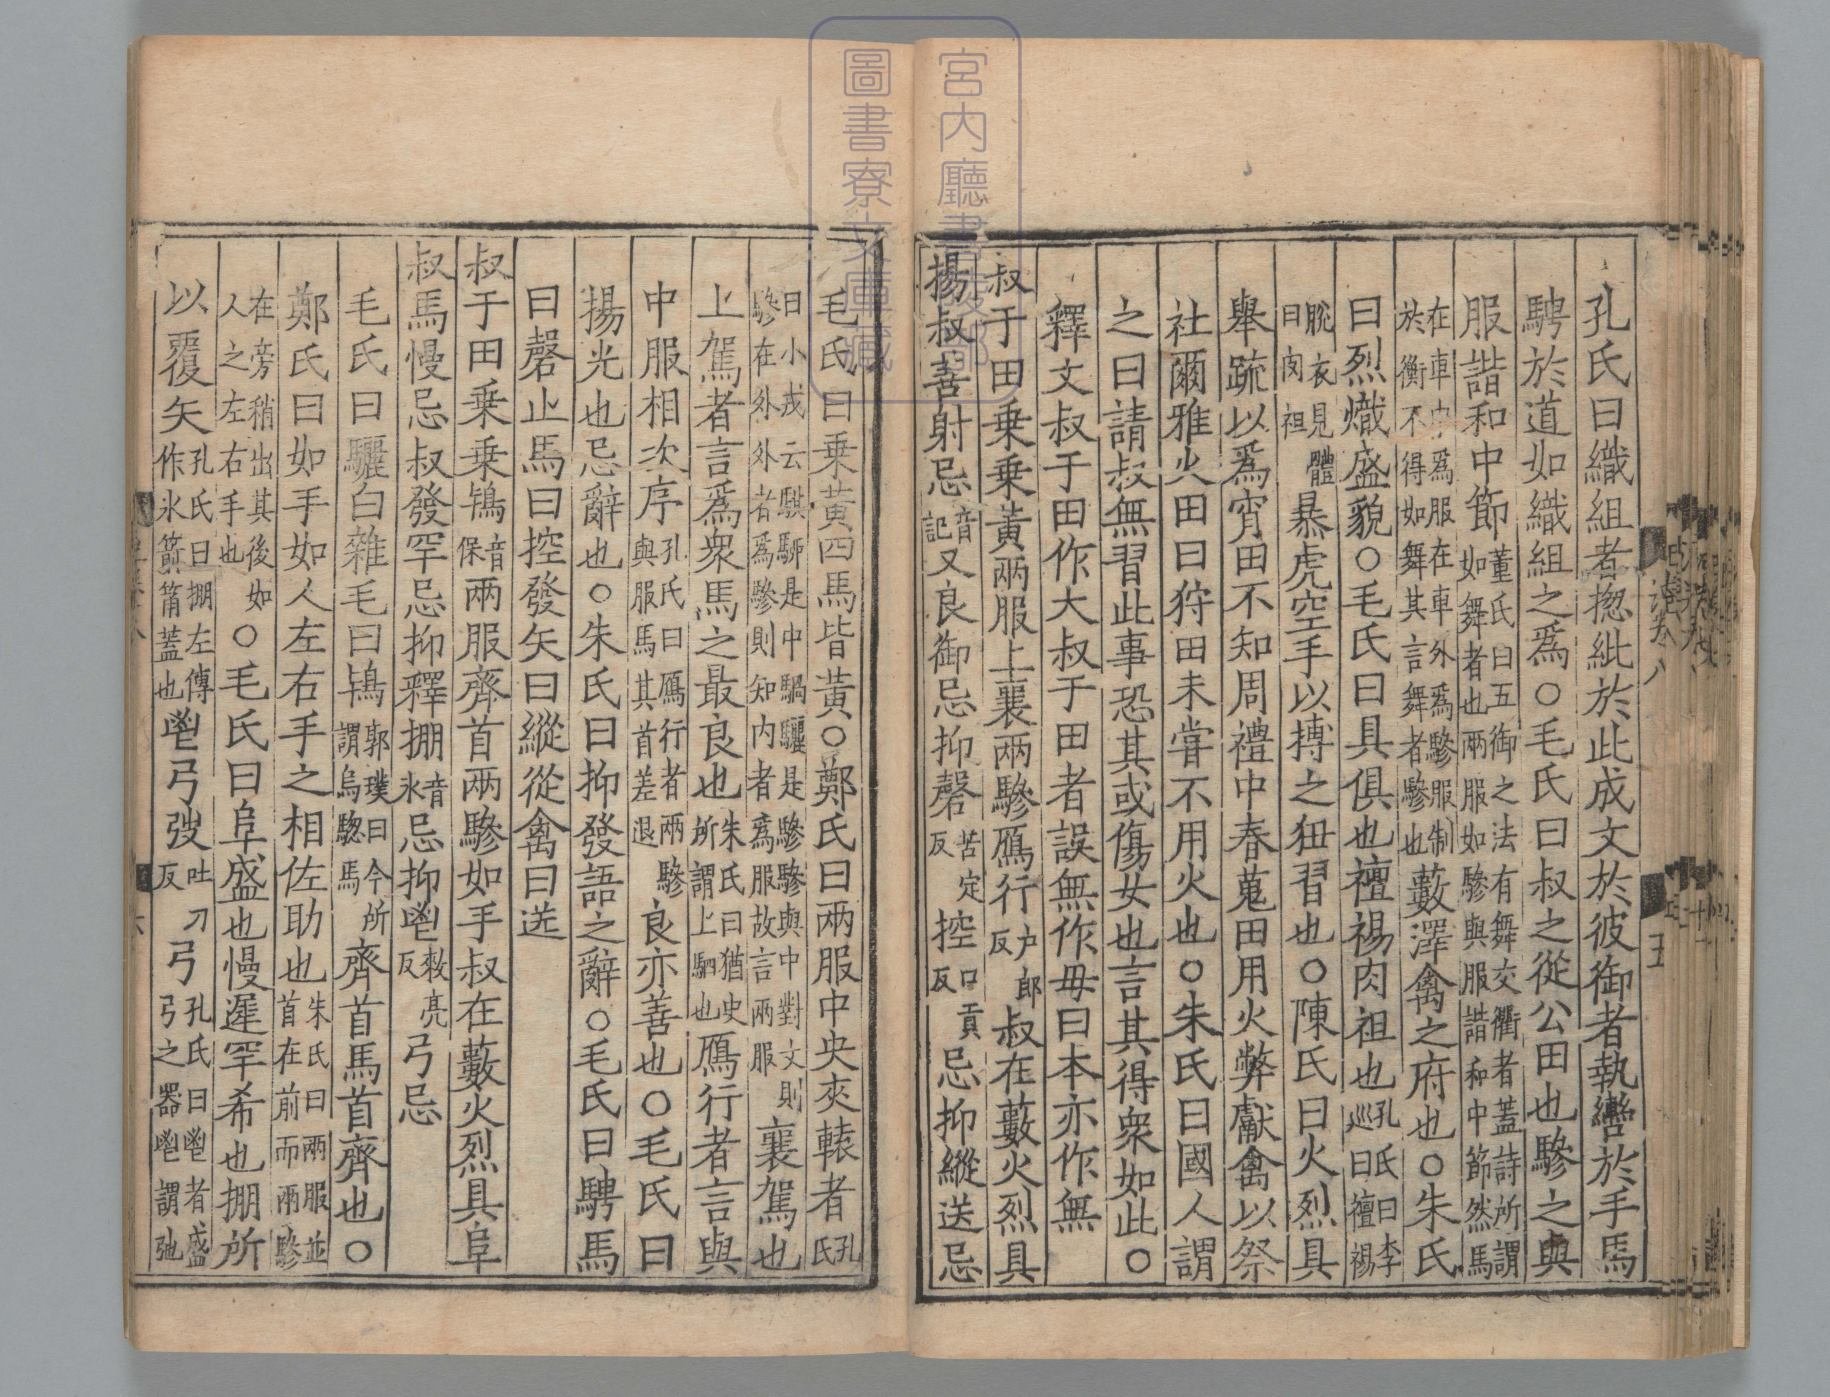 孔氏曰織組者揔紕於此成文於彼御者執轡於手馬
騁於道如織組之爲○毛氏曰叔之從公田也驂之與
服諧和中節董氏曰五御之法有舞交衢者蓋詩所謂如舞者也兩服如驂與服諧和中節然馬
在車中爲服在車外爲驂服制於衡不得如舞其言舞者驂也藪澤禽之府也○朱氏
曰烈熾盛貌○毛氏曰具俱也襢裼肉袒也孔氏曰李巡曰襢裼
脫衣見體曰肉袒暴虎空手以搏之狃習也○陳氏曰火烈具
舉疏以爲宵田不知周禮中春蒐田用火弊獻禽以祭
社爾雅火田曰狩田未嘗不用火也○朱氏曰國人謂
之曰請叔無習此事恐其或傷女也言其得衆如此○
釋文叔于田作大叔于田者誤無作毋曰本亦作無
叔于田乘乘黃兩服上襄兩驂鴈行户郎反叔在藪火烈具
揚叔善射忌音記又良御忌抑磬苦定反控口貢反忌抑縱送忌
毛氏曰乘黃四馬皆黃○鄭氏曰兩服中央夾轅者孔氏
曰小戎云騏駵是中騧驪是驂驂與中對文則驂在外外者爲驂則知內者爲服故言兩服襄駕也
上駕者言爲衆馬之最良也朱氏曰猶史所謂上駟也鴈行者言與
中服相次序孔氏曰鴈行者兩驂與服馬其首差退良亦善也○毛氏曰
揚光也忌辭也○朱氏曰抑發語之辭○毛氏曰騁馬
曰磬止馬曰控發矢曰縱從禽曰送
叔于田乘乘鴇音保兩服齊首兩驂如手叔在藪火烈具阜
叔馬慢忌叔發罕忌抑釋掤音氷忌抑鬯敕亮反弓忌
毛氏曰驪白雜毛曰鴇郭璞曰今所謂烏驄馬齊首馬首齊也○
鄭氏曰如手如人左右手之相佐助也朱氏曰兩服並首在前而兩驂
在旁稍出其後如人之左右手也○毛氏曰阜盛也慢遲罕希也掤所
以覆矢孔氏曰掤左傳作氷箭筩蓋也鬯弓弢吐刀反弓孔氏曰鬯者盛弓之器鬯弓謂弢
詩卷八
五
六
宮内廳書陵部
圖書寮文庫藏